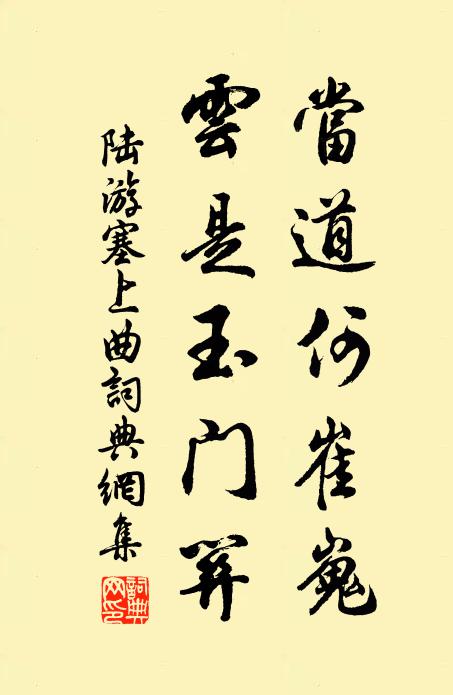 當道何崔嵬
雲是玉門關
陸游塞上曲詞典網集
詞典
网印